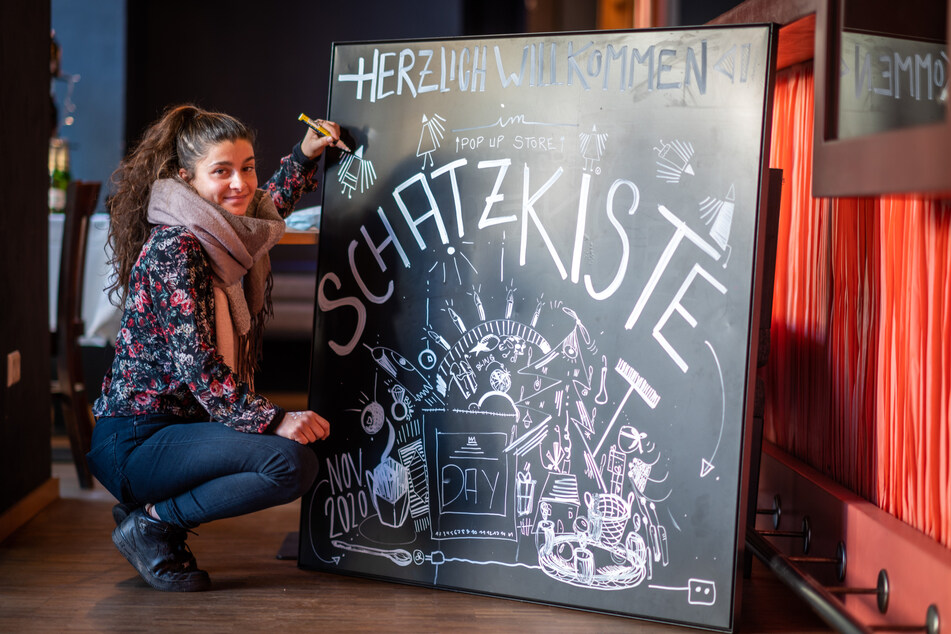 HERZLICH WILLKOMMEN
im
POP UP STORE
SCHATZKISTE
DAY
NOV.
2020